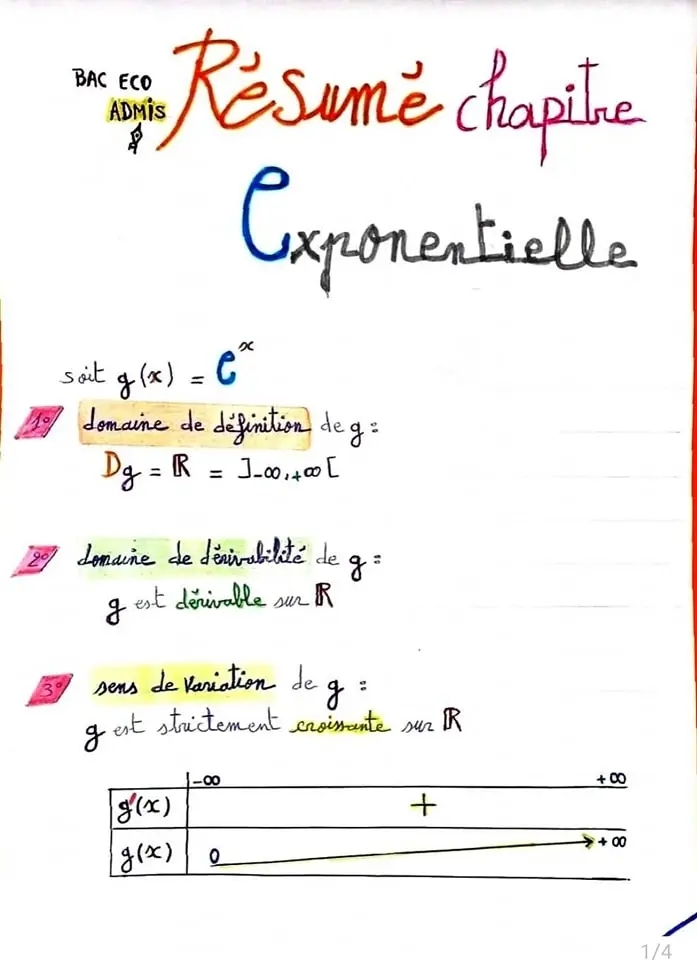 BAC ECO
ADMIS
Résumé chapitre
Exponentielle
soit g(x) = e^x
1° domaine de définition de g :
Dg = ℝ = ]-∞,+∞[
2° domaine de dérivabilité de g :
g est dérivable sur ℝ
3° sens de variation de g :
g est strictement croissante sur ℝ
-∞ +∞
g'(x) +
g(x) 0 +∞
1/4